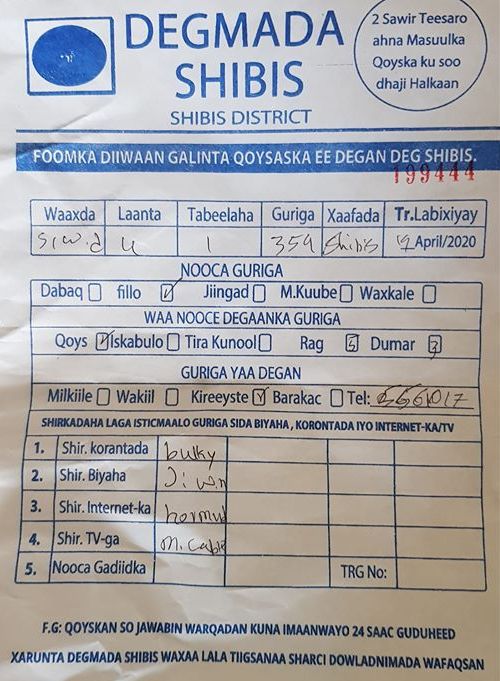 DEGMADA
SHIBIS
SHIBIS DISTRICT
2 Sawir Teesaro
ahna Masuulka
Qoyska ku soo
dhaji Halkaan
FOOMKA DIIWAAN GALINTA QOYSASKA EE DEGAN DEG SHIBIS.
199444
Waaxda Laanta Tabeelaha Guriga Xaafada Tr.Labixiyay
Siw.d 4 1 359 Shibis 19 April/2020
NOOCA GURIGA
Dabaq fillo Jiingad M.Kuube Waxkale
WAA NOOCE DEGAANKA GURIGA
Qoys Iskabulo Tira Kunool Rag 5 Dumar 3
GURIGA YAA DEGAN
Milkiile Wakiil Kireeyste Barakac Tel:
SHIRKADAHA LAGA ISTICMAALO GURIGA SIDA BIYAHA, KORONTADA IYO INTERNET-KA/TV
1. Shir. korantada bulky
2. Shir. Biyaha
3. Shir. Internet-ka hormud
4. Shir. TV-ga M.Cable
5. Nooca Gadiidka TRG No:
F.G: QOYSKAN SO JAWABIN WARQADAN KUNA IMAANWAYO 24 SAAC GUDUHEED
XARUNTA DEGMADA SHIBIS WAXAA LALA TIIGSANAA SHARCI DOWLADNIMADA WAFAQSAN